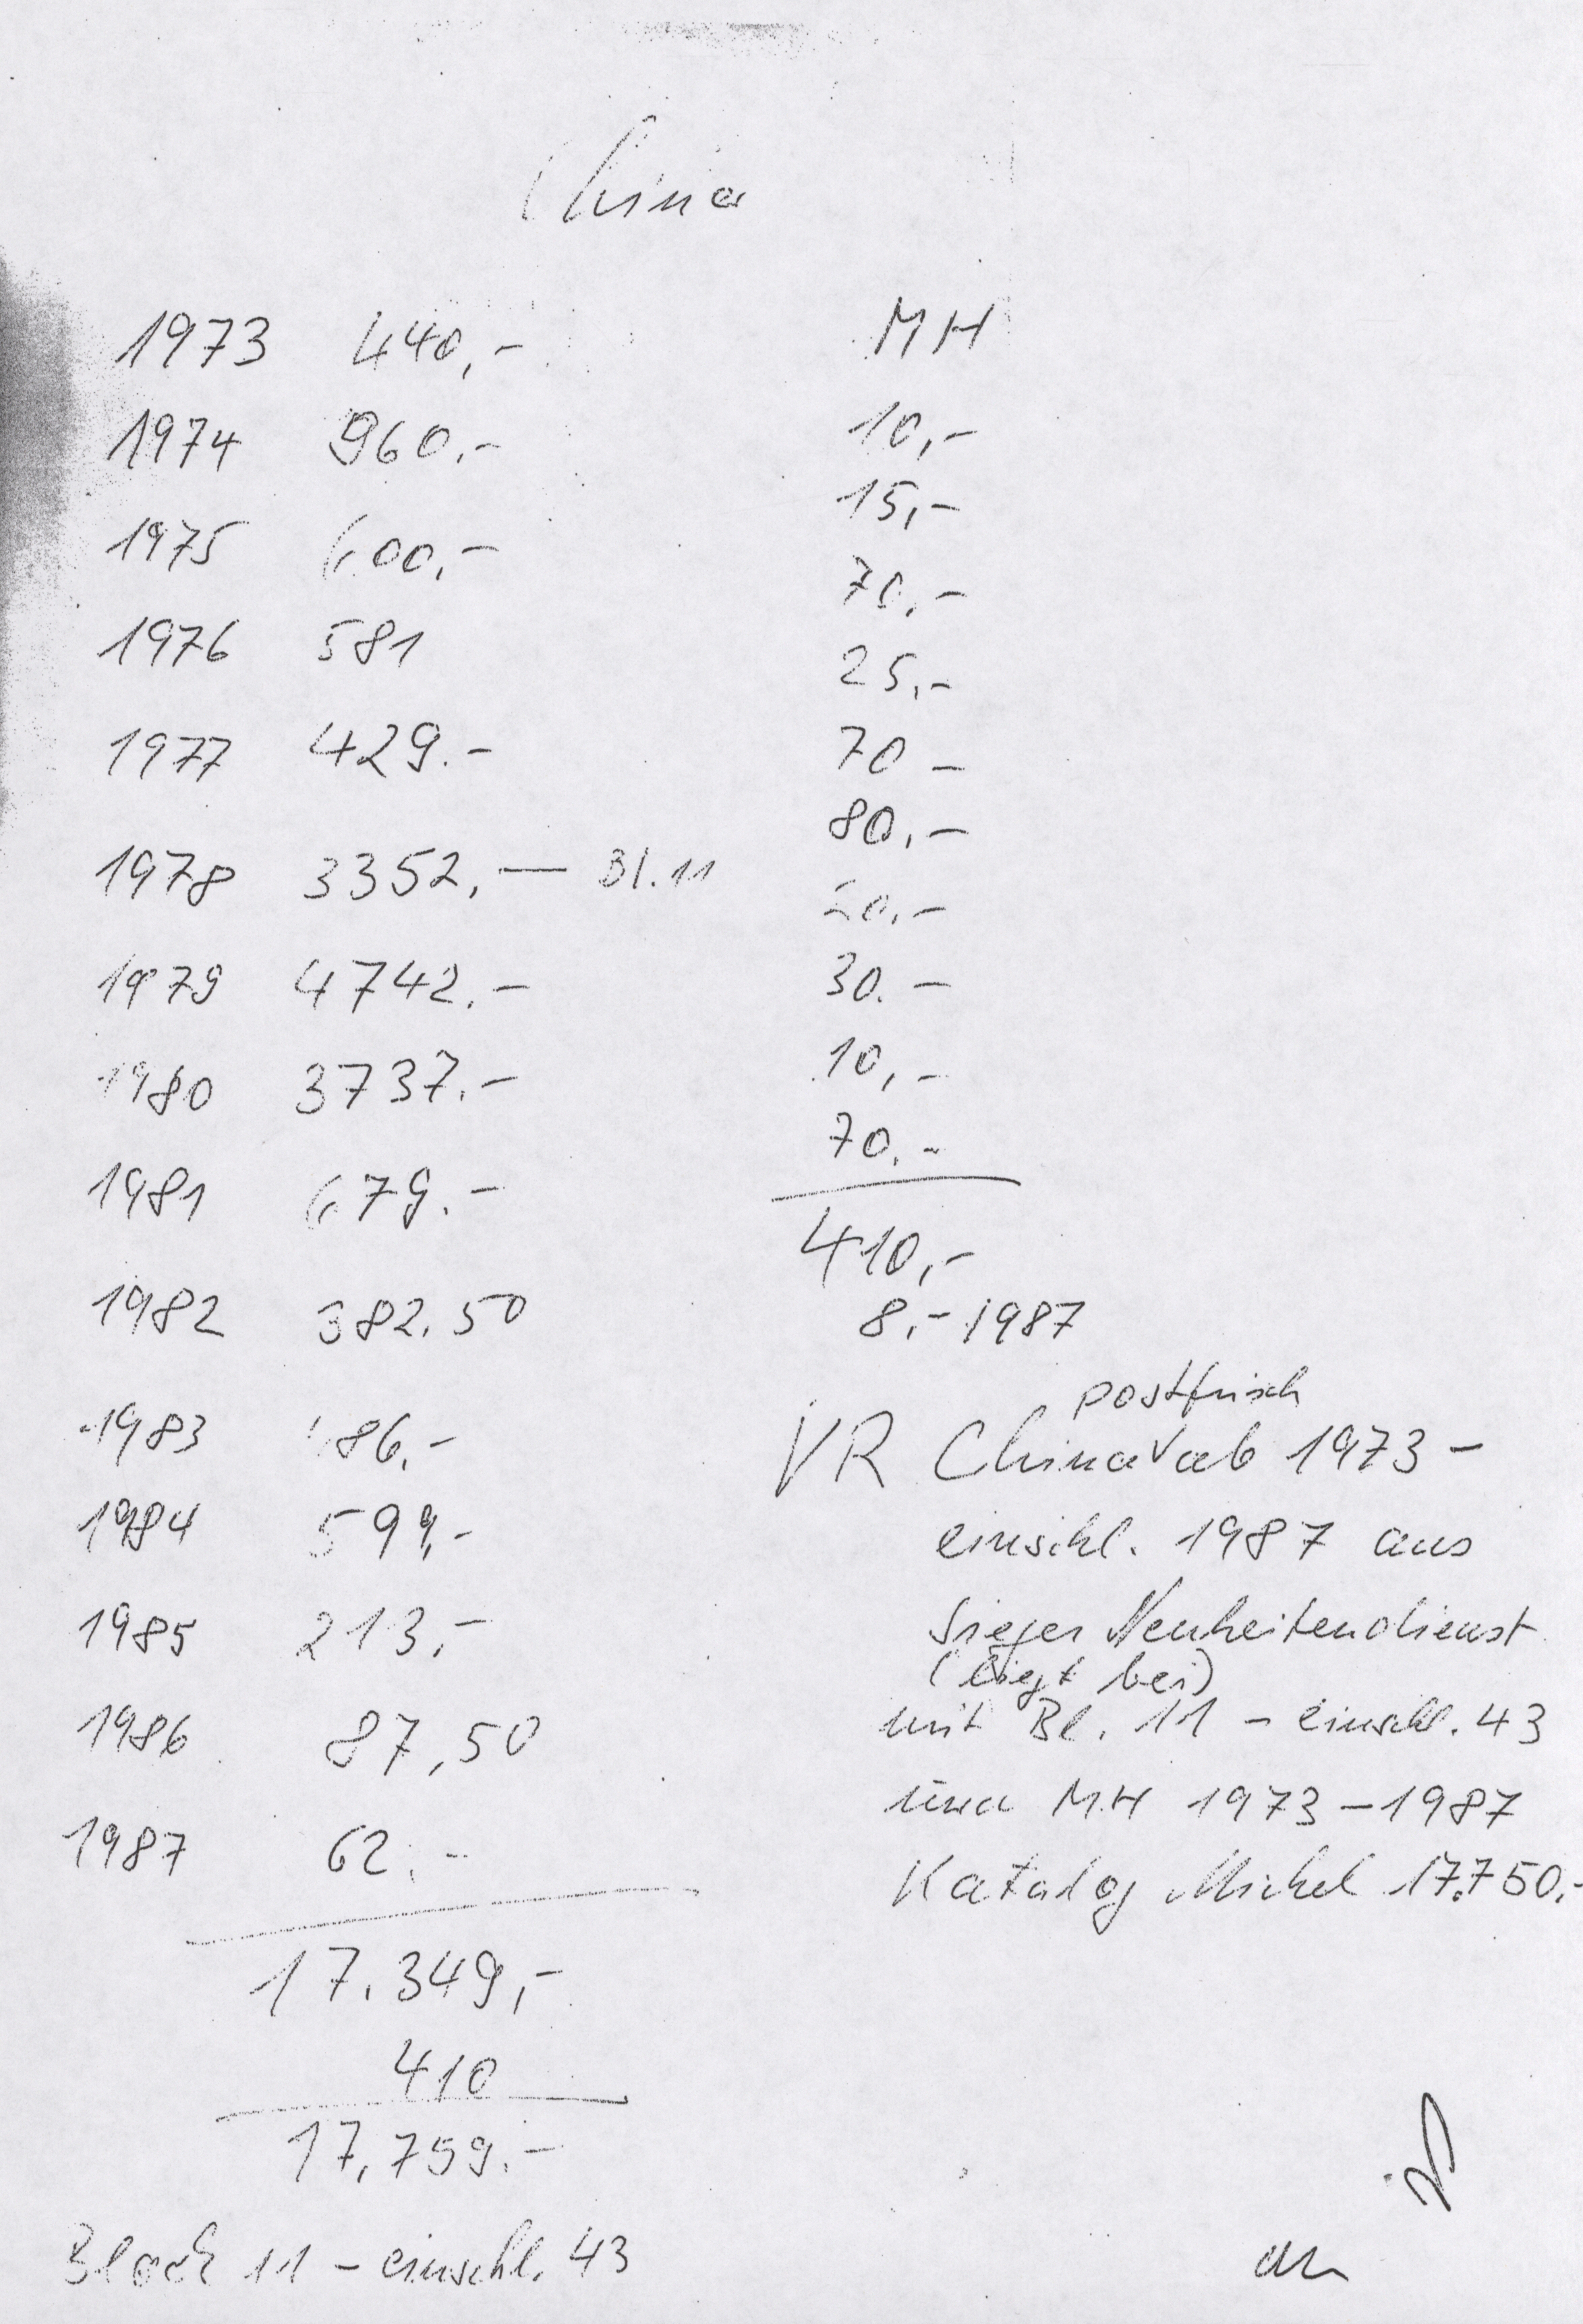 China
1973 440,-
1974 960.-
1975 600,-
1976 581
1977 429.-
1978 3352,— Bl. 11
1979 4742.-
1980 3737.-
1981 679.-
1982 382.50
1983 486,-
1984 599,-
1985 213,-
1986 87,50
1987 62.-
17.349,-
410
17,759.-
Block 11 - einschl. 43
MH
10,-
15,-
70,-
25,-
70 -
80,-
30,-
30.-
10,-
70.-
410,-
8,- 1987
postfrisch
VR China ab 1973 -
einschl. 1987 aus
Sieger Neuheitendienst
(liegt bei)
mit Bl. 11 - einschl. 43
und M.H 1973 - 1987
Katalog Michel 17.750,-